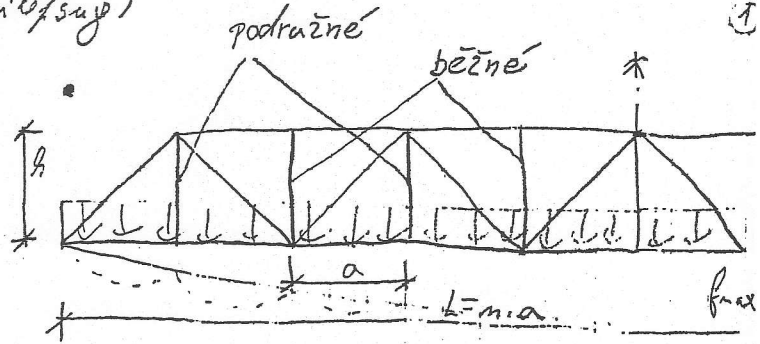 ①
podružné
běžné
h
a
L=n.a
fmax